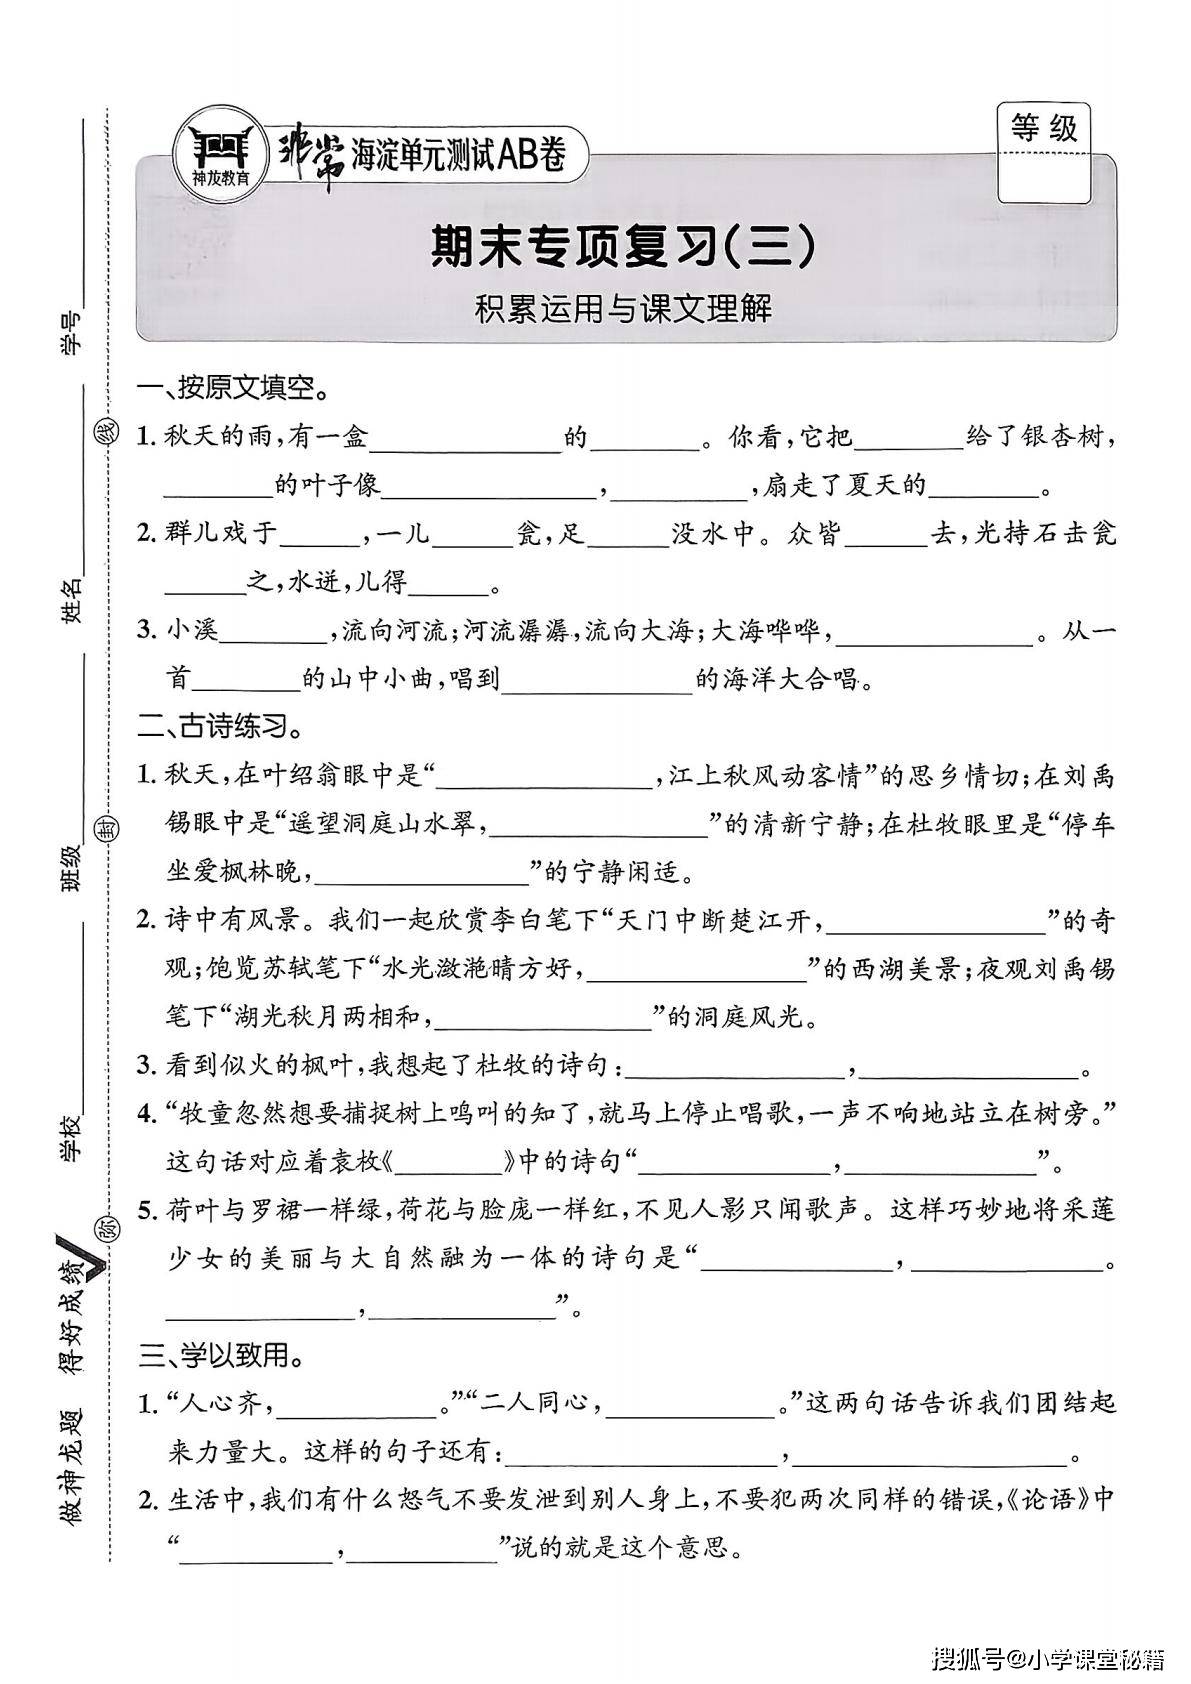 神龙教育
非常海淀单元测试AB卷
等级
期末专项复习(三)
积累运用与课文理解
一、按原文填空。
1. 秋天的雨,有一盒____的____。你看,它把____给了银杏树,
____的叶子像____,____,扇走了夏天的____。
2. 群儿戏于____,一儿____瓮,足____没水中。众皆____去,光持石击瓮
____之,水迸,儿得____。
3. 小溪____,流向河流;河流潺潺,流向大海;大海哗哗,____。从一
首____的山中小曲,唱到____的海洋大合唱。
二、古诗练习。
1. 秋天,在叶绍翁眼中是“____,江上秋风动客情”的思乡情切;在刘禹
锡眼中是“遥望洞庭山水翠,____”的清新宁静;在杜牧眼里是“停车
坐爱枫林晚,____”的宁静闲适。
2. 诗中有风景。我们一起欣赏李白笔下“天门中断楚江开,____”的奇
观;饱览苏轼笔下“水光潋滟晴方好,____”的西湖美景;夜观刘禹锡
笔下“湖光秋月两相和,____”的洞庭风光。
3. 看到似火的枫叶,我想起了杜牧的诗句:____,____。
4. “牧童忽然想要捕捉树上鸣叫的知了,就马上停止唱歌,一声不响地站立在树旁。”
这句话对应着袁枚《____》中的诗句“____,____”。
5. 荷叶与罗裙一样绿,荷花与脸庞一样红,不见人影只闻歌声。这样巧妙地将采莲
少女的美丽与大自然融为一体的诗句是“____,____。
____,____”。
三、学以致用。
1. “人心齐,____。”“二人同心,____。”这两句话告诉我们团结起
来力量大。这样的句子还有:____,____。
2. 生活中,我们有什么怒气不要发泄到别人身上,不要犯两次同样的错误,《论语》中
“____,____”说的就是这个意思。
学号____
姓名____
班级____
学校____
线
封
弥
做神龙题 得好成绩
搜狐号@小学课堂秘籍